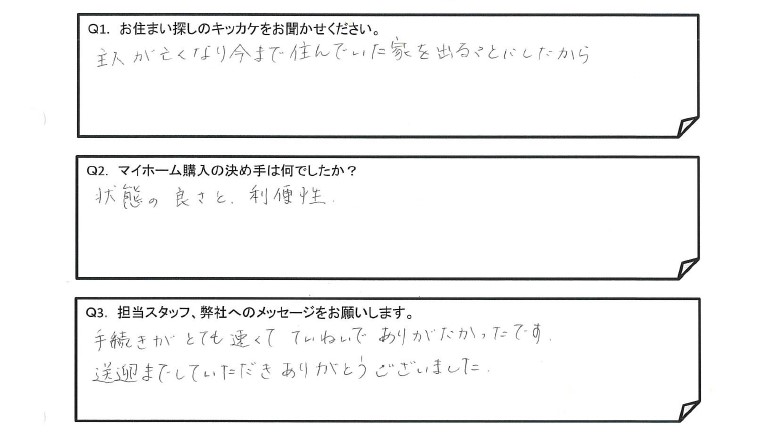 Q1. お住まい探しのキッカケをお聞かせください。
主人が亡くなり今まで住んでいた家を出ることにしたから
Q2. マイホーム購入の決め手は何でしたか？
状態の良さと、利便性.
Q3. 担当スタッフ、弊社へのメッセージをお願いします。
手続きがとても速くてていねいでありがたかったです.
送迎までしていただきありがとうございました.